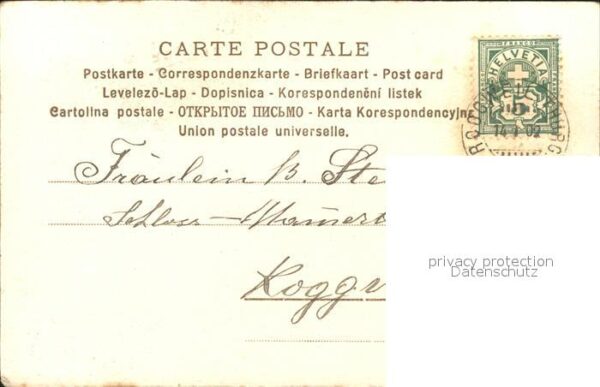 CARTE POSTALE
Postkarte - Correspondenzkarte - Briefkaart - Post card
Levelező-Lap - Dopisnica - Korespondenční listek
Cartolina postale - ОТКРЫТОЕ ПИСЬМО - Karta Korespondencyjn
Union postale universelle.
FRANCO
HELVETIA
5
14.I.02
Fräulein B. Ste
Schloss -
Rogg
privacy protection
Datenschutz